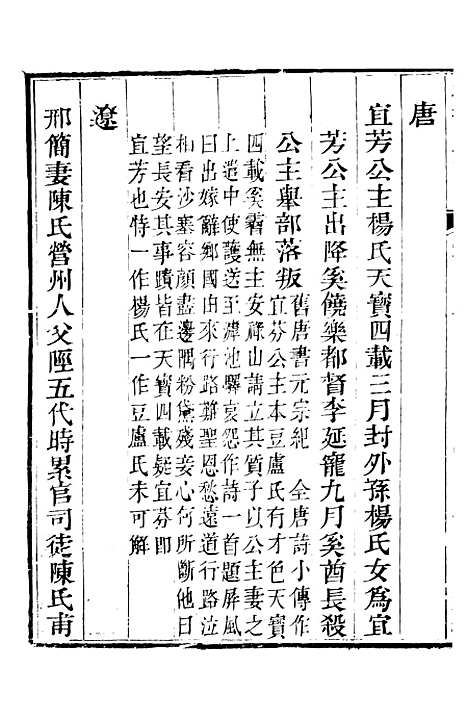 唐
宜芳公主楊氏天寶四載三月封外孫楊氏女爲宜
芳公主出降奚饒樂都督李延寵九月奚酋長殺
公主舉部落叛
舊唐書元宗紀　全唐詩小傳作
宜芬公主本豆盧氏有才色天寶
四載奚霫無主安祿山請立其質子以公主妻之
上遣中使護送至虛池驛哀怨作詩一首題屏風
曰出嫁辭鄉國由來行路難聖恩愁遠道行路泣
相看沙塞容顏盡邊隅粉黛殘妾心何所斷他日
望長安其事蹟皆在天寶四載疑宜芬即
宜芳也惟一作楊氏一作豆盧氏未可解
遼
邢簡妻陳氏營州人父陘五代時累官司徒陳氏甫